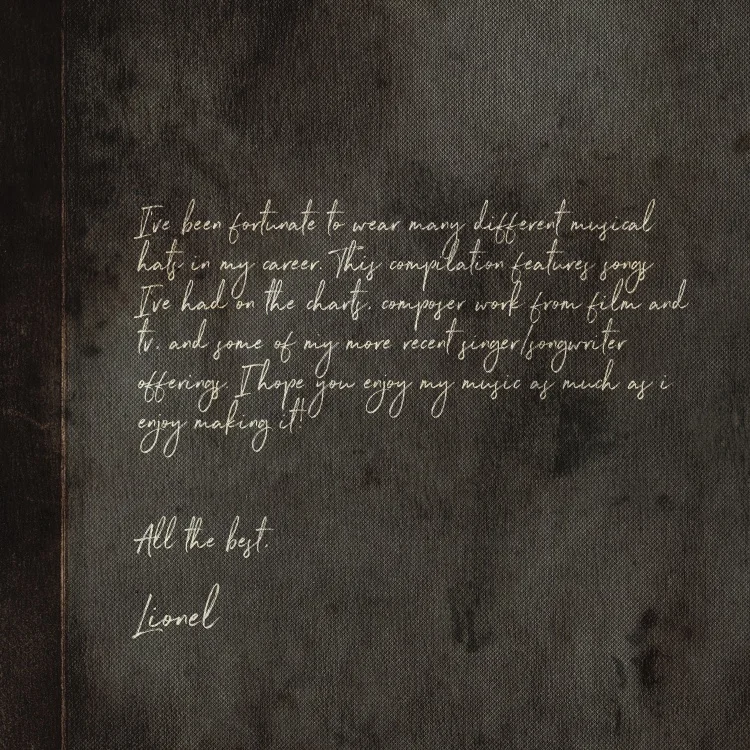 I've been fortunate to wear many different musical
hats in my career. This compilation features songs
I've had on the charts, composer work from film and
tv, and some of my more recent singer/songwriter
offerings. I hope you enjoy my music as much as i
enjoy making it!
All the best,
Lionel